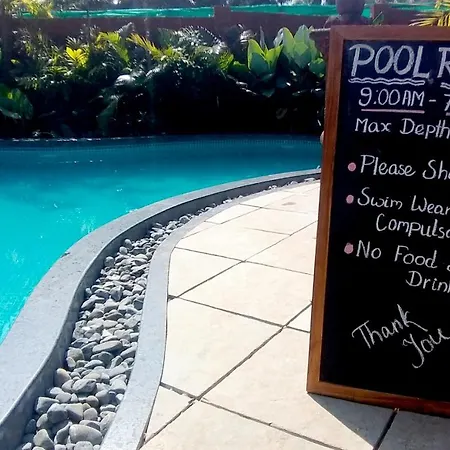 POOL R
9:00AM - 7
Max Depth
• Please Sho
• Swim Wear
Compulso
• No Food &
Drin
Thank
you